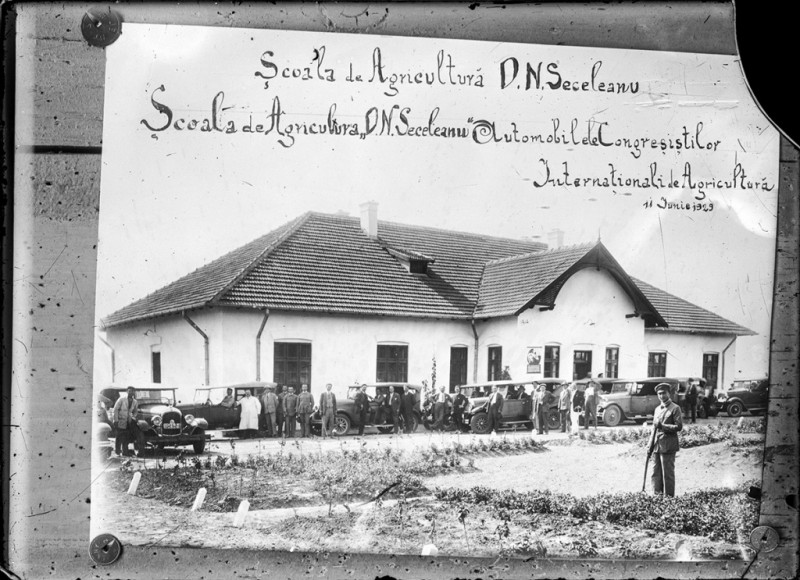 Școala de Agricultură D.N. Seceleanu
Școala de Agricultura „D.N. Seceleanu" Automobilele Congresiștilor
Internaționali de Agricultură
11 Iunie 1929